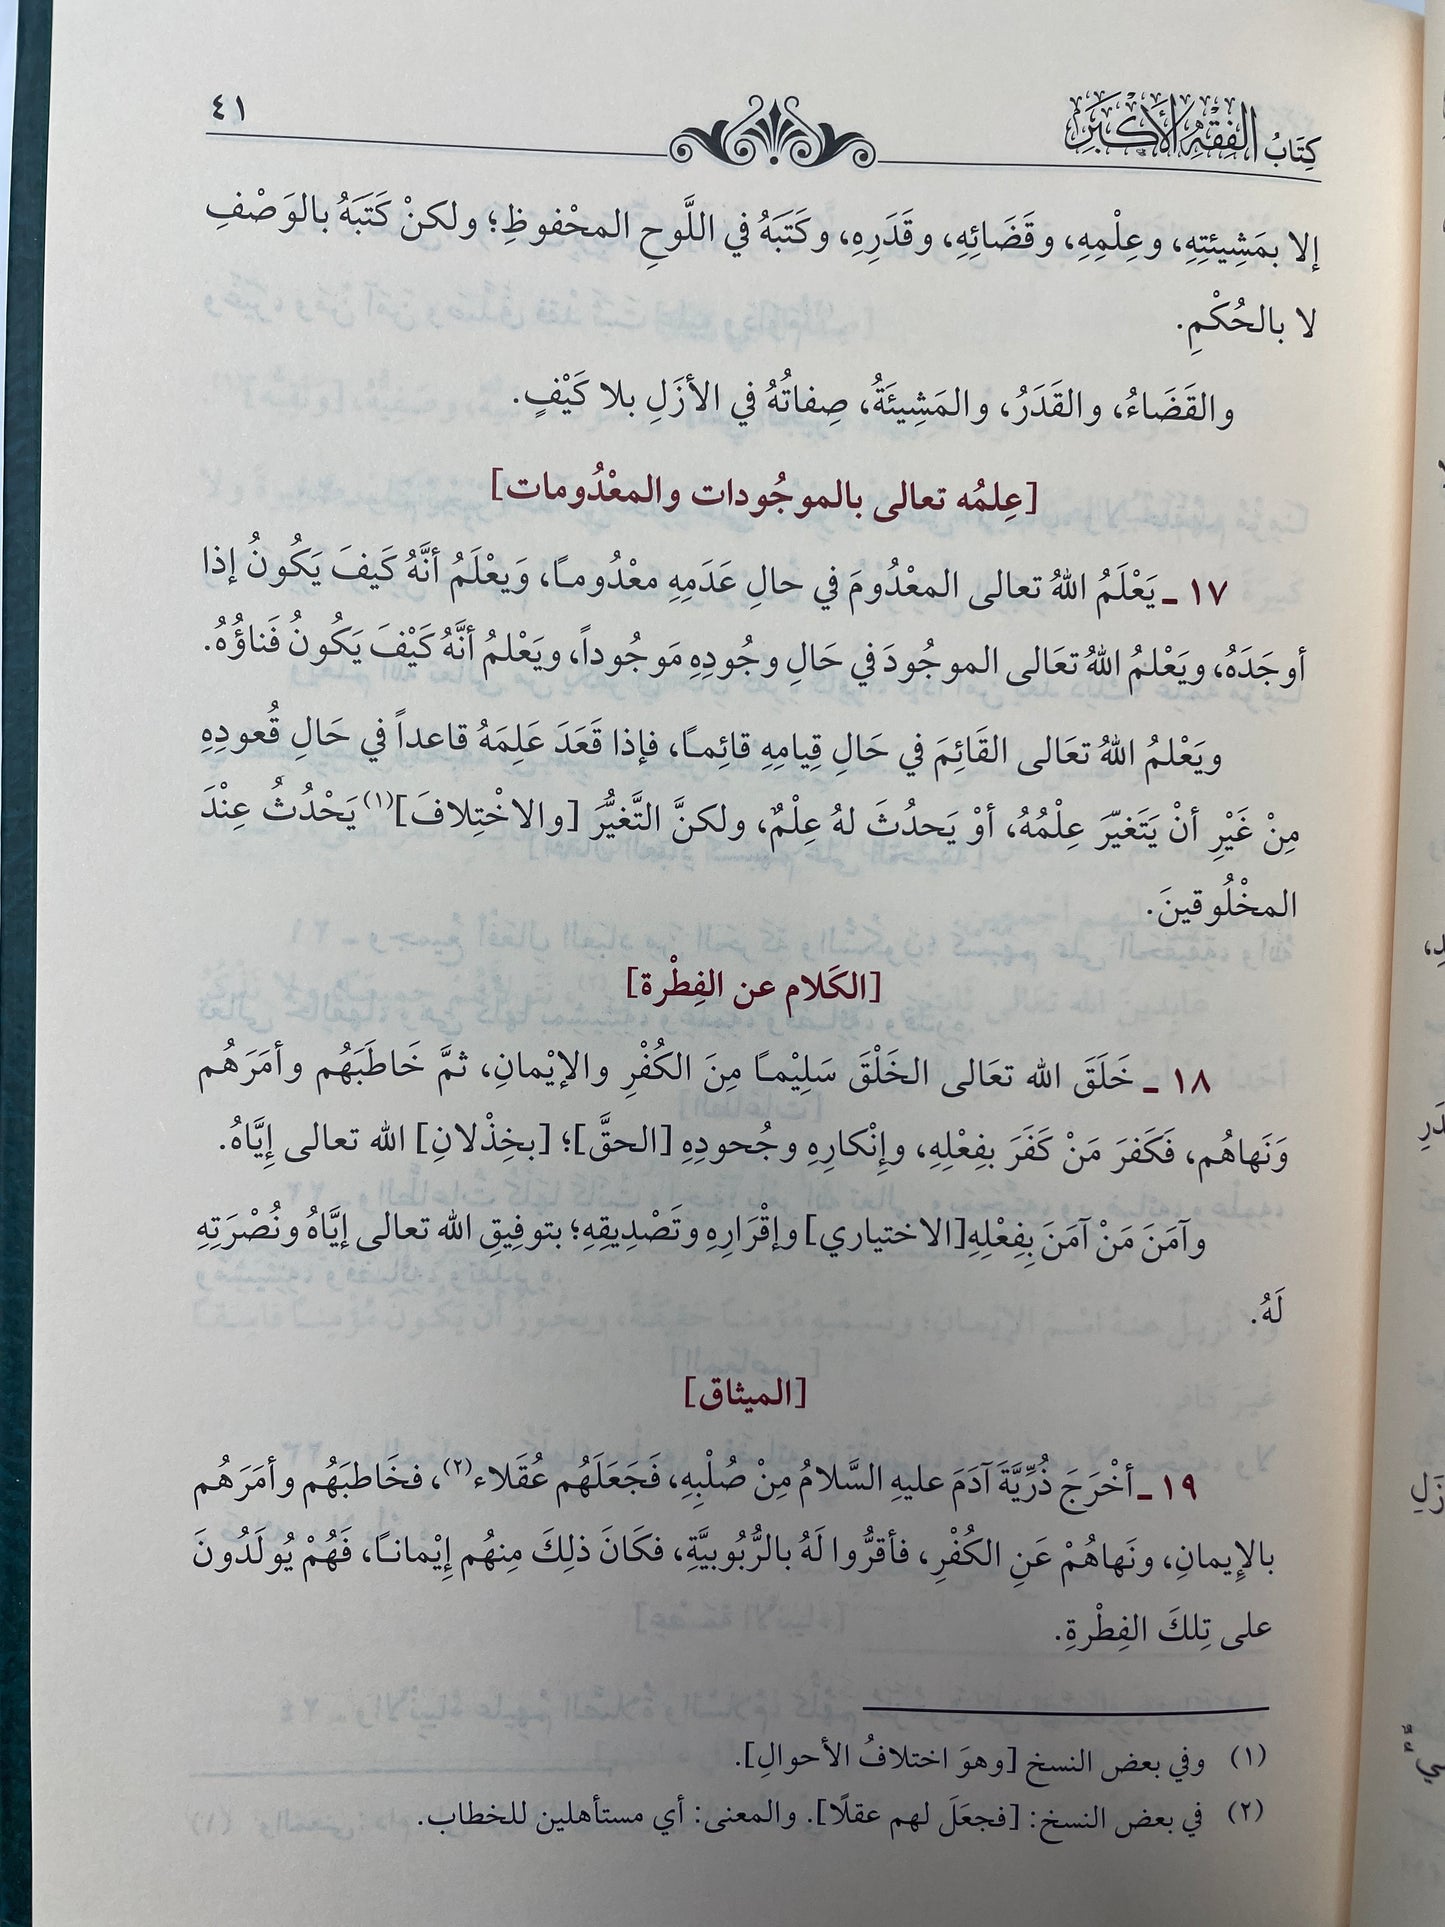 كِتَابُ الفِقْهِ الأَكْبَرِ
٤١
إلا بمَشِيئتِهِ، وعِلْمِهِ، وقَضَائِهِ، وقَدَرِهِ، وكَتَبَهُ في اللَّوحِ المحْفوظِ؛ ولكنْ كَتَبَهُ بالوَصْفِ
لا بالحُكْمِ.
والقَضَاءُ، والقَدَرُ، والمَشِيئَةُ، صِفاتُهُ في الأزَلِ بلا كَيْفٍ.
[عِلمُه تعالى بالموجُودات والمعْدُومات]
١٧ ـ يَعْلَمُ اللهُ تعالى المعْدُومَ في حالِ عَدَمِهِ معْدُومـًا، وَيعْلَمُ أنَّهُ كَيفَ يَكُونُ إذا
أوجَدَهُ، ويَعْلمُ اللهُ تعَالى الموجُودَ في حَالِ وجُودِهِ مَوجُوداً، ويَعْلمُ أنَّهُ كَيْفَ يَكُونُ فَناؤُهُ.
ويَعْلمُ اللهُ تعَالى القَائِمَ في حَالِ قِيامِهِ قائِمـًا، فإذا قَعَدَ عَلِمَهُ قاعداً في حَالِ قُعودِهِ
مِنْ غَيْرِ أنْ يَتَغيّرَ عِلْمُهُ، أوْ يَحدُثَ لهُ عِلْمٌ، ولكنَّ التَّغيُّرَ [والاخْتِلافَ](١) يَحْدُثُ عِنْدَ
المخْلُوقينَ.
[الكَلام عن الفِطْرة]
١٨ ـ خَلَقَ الله تعَالى الخَلْقَ سَلِيْمـًا مِنَ الكُفْرِ والإيْمانِ، ثمَّ خَاطَبَهُم وأمَرَهُم
وَنَهاهُم، فَكَفرَ مَنْ كَفَرَ بفِعْلِهِ، وإِنْكارِهِ وجُحودِهِ [الحقَّ]؛ [بخِذْلانِ] الله تعالى إِيَّاهُ.
وآمَنَ مَنْ آمَنَ بِفِعْلِهِ[الاختياري] وإقْرَارِهِ وتَصْدِيقِهِ؛ بتوفِيقِ الله تعالى إيَّاهُ ونُصْرَتِهِ
لَهُ.
[الميثاق]
١٩ ـ أخْرَجَ ذُرِّيَّةَ آدَمَ عليهِ السَّلامُ مِنْ صُلْبِهِ، فَجَعَلَهُم عُقَلاء(٢)، فخَاطبَهُم وأمَرَهُم
بالإِيمانِ، ونَهاهُمْ عَنِ الكُفْرِ، فأقرُّوا لَهُ بالرُّبُوبيَّةِ، فكَانَ ذلِكَ مِنهُم إِيْمانـًا، فَهُمْ يُولَدُونَ
على تِلكَ الفِطْرةِ.
(١) وفي بعض النسخ [وهوَ اختلافُ الأحوالِ].
(٢) في بعض النسخ: [فجعَلَ لهم عقلًا]. والمعنى: أي مستأهلين للخطاب.